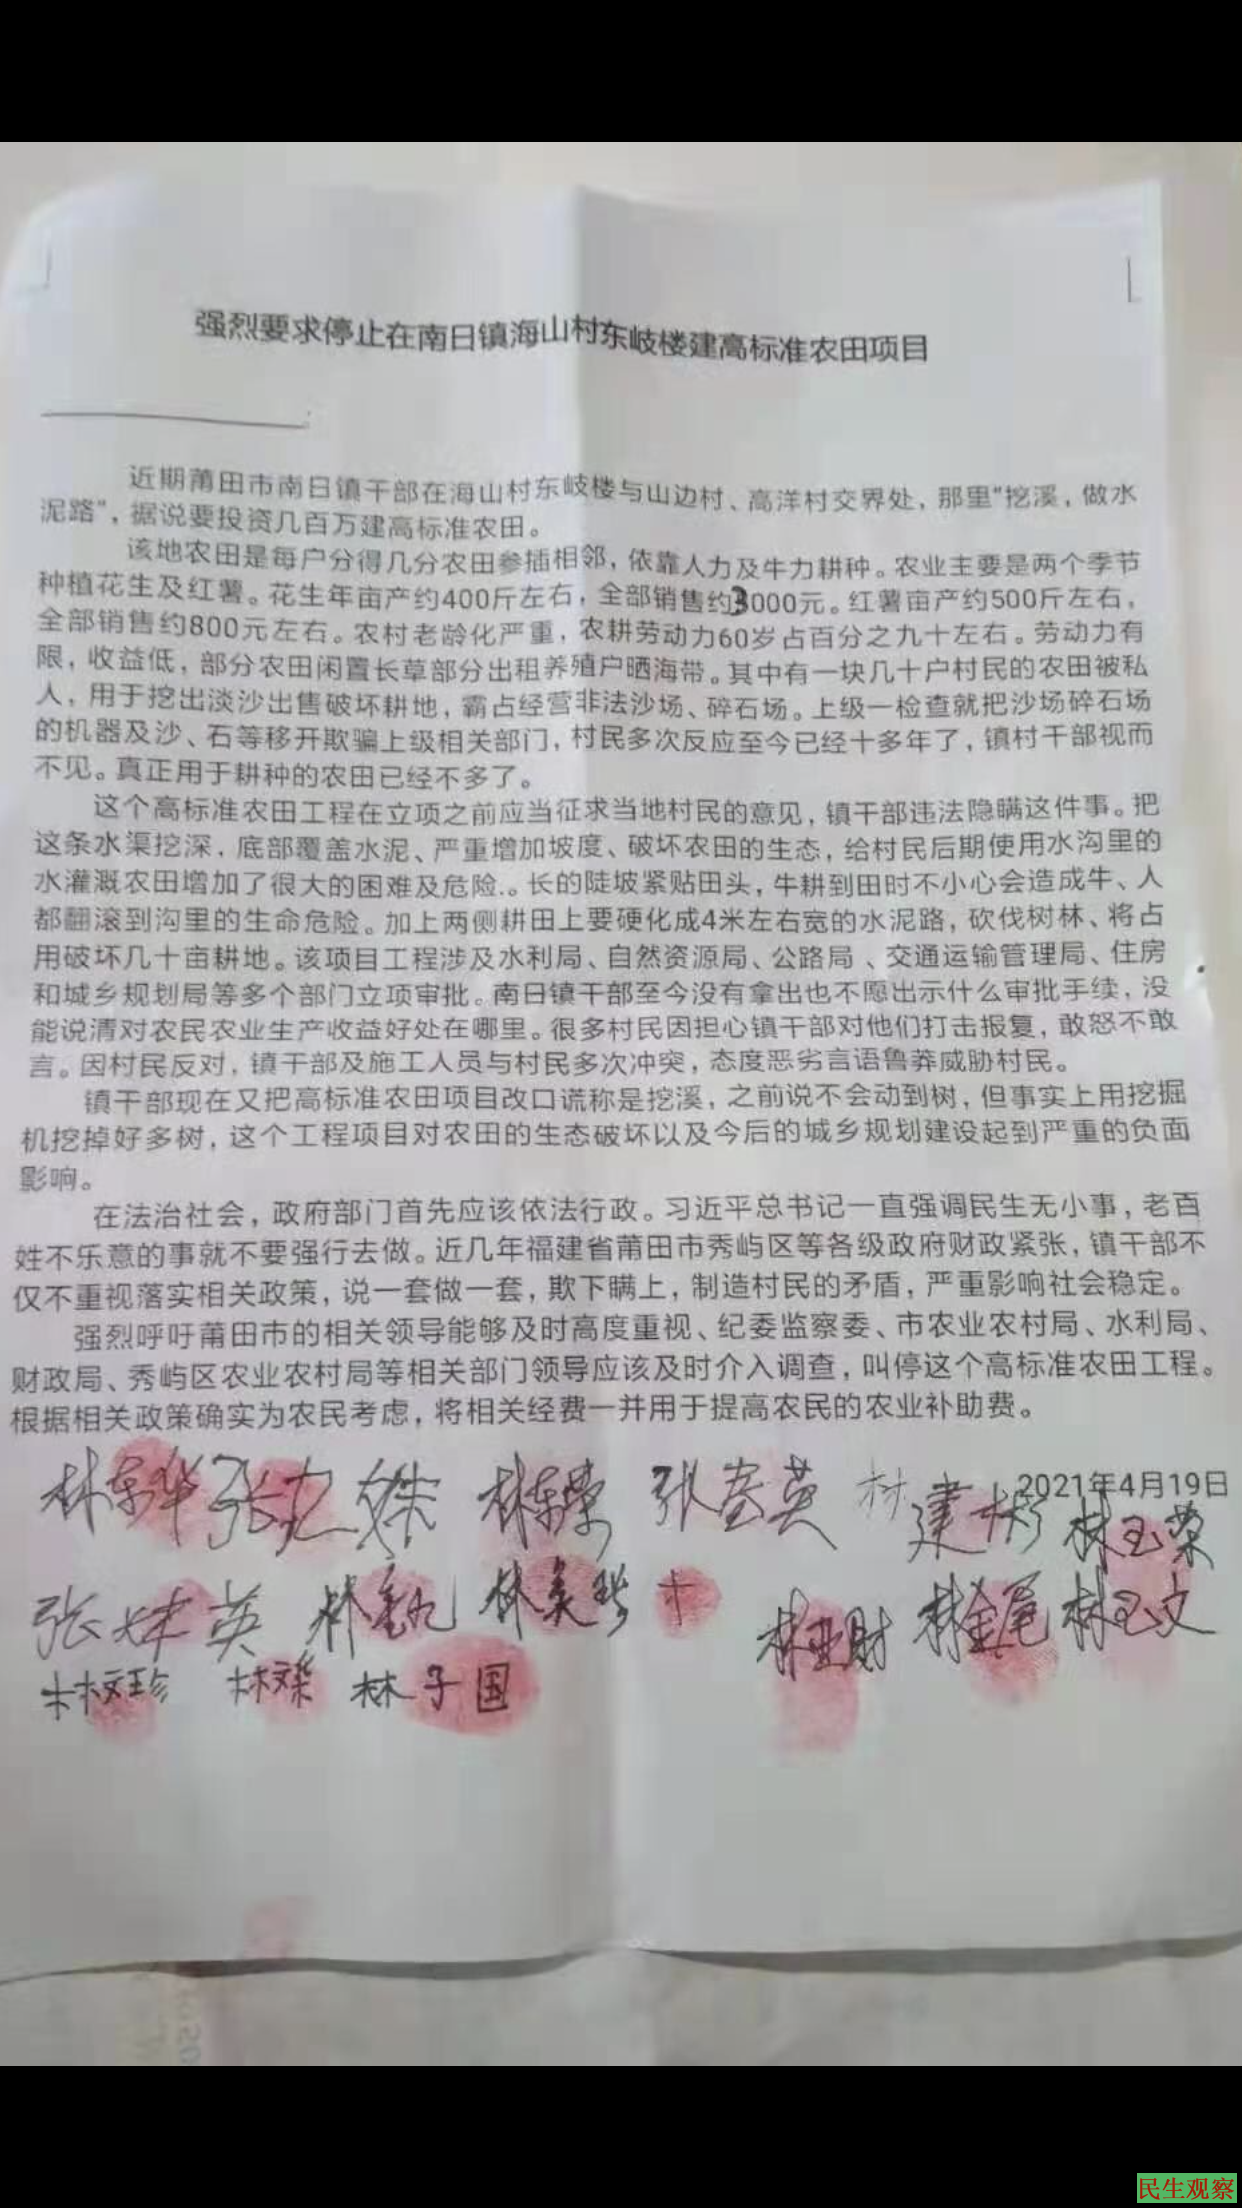 强烈要求停止在南日镇海山村东岐楼建高标准农田项目
:
近期莆田市南日镇干部在海山村东岐楼与山边村、高洋村交界处，那里"挖溪，做水
泥路"，据说要投资几百万建高标准农田。
该地农田是每户分得几分农田参插相邻，依靠人力及牛力耕种。农业主要是两个季节
种植花生及红薯。花生年亩产约400斤左右，全部销售约3000元。红薯亩产约500斤左右，
全部销售约800元左右。农村老龄化严重，农耕劳动力60岁占百分之九十左右。劳动力有
限，收益低，部分农田闲置长草部分出租养殖户晒海带。其中有一块几十户村民的农田被私
人，用于挖出淡沙出售破坏耕地，霸占经营非法沙场、碎石场。上级一检查就把沙场碎石场
的机器及沙、石等移开欺骗上级相关部门，村民多次反应至今已经十多年了，镇村干部视而
不见。真正用于耕种的农田已经不多了。
这个高标准农田工程在立项之前应当征求当地村民的意见，镇干部违法隐瞒这件事。把
这条水渠挖深，底部覆盖水泥、严重增加坡度、破坏农田的生态，给村民后期使用水沟里的
水灌溉农田增加了很大的困难及危险.。长的陡坡紧贴田头，牛耕到田时不小心会造成牛、人
都翻滚到沟里的生命危险。加上两侧耕田上要硬化成4米左右宽的水泥路，砍伐树林、将占
用破坏几十亩耕地。该项目工程涉及水利局、自然资源局、公路局、交通运输管理局、住房
和城乡规划局等多个部门立项审批。南日镇干部至今没有拿出也不愿出示什么审批手续，没
能说清对农民农业生产收益好处在哪里。很多村民因担心镇干部对他们打击报复，敢怒不敢
言。因村民反对，镇干部及施工人员与村民多次冲突，态度恶劣言语鲁莽威胁村民。
镇干部现在又把高标准农田项目改口谎称是挖溪，之前说不会动到树，但事实上用挖掘
机挖掉好多树，这个工程项目对农田的生态破坏以及今后的城乡规划建设起到严重的负面
影响。
在法治社会，政府部门首先应该依法行政。习近平总书记一直强调民生无小事，老百
姓不乐意的事就不要强行去做。近几年福建省莆田市秀屿区等各级政府财政紧张，镇干部不
仅不重视落实相关政策，说一套做一套，欺下瞒上，制造村民的矛盾，严重影响社会稳定。
强烈呼吁莆田市的相关领导能够及时高度重视、纪委监察委、市农业农村局、水利局、
财政局、秀屿区农业农村局等相关部门领导应该及时介入调查，叫停这个高标准农田工程。
根据相关政策确实为农民考虑，将相关经费一并用于提高农民的农业补助费。
2021年4月19日
林东华 林东荣 林建彬 林玉荣
林美珍 十 林亚财 林金尾 林玉文
林文珍 林文荣 林子国
民生观察